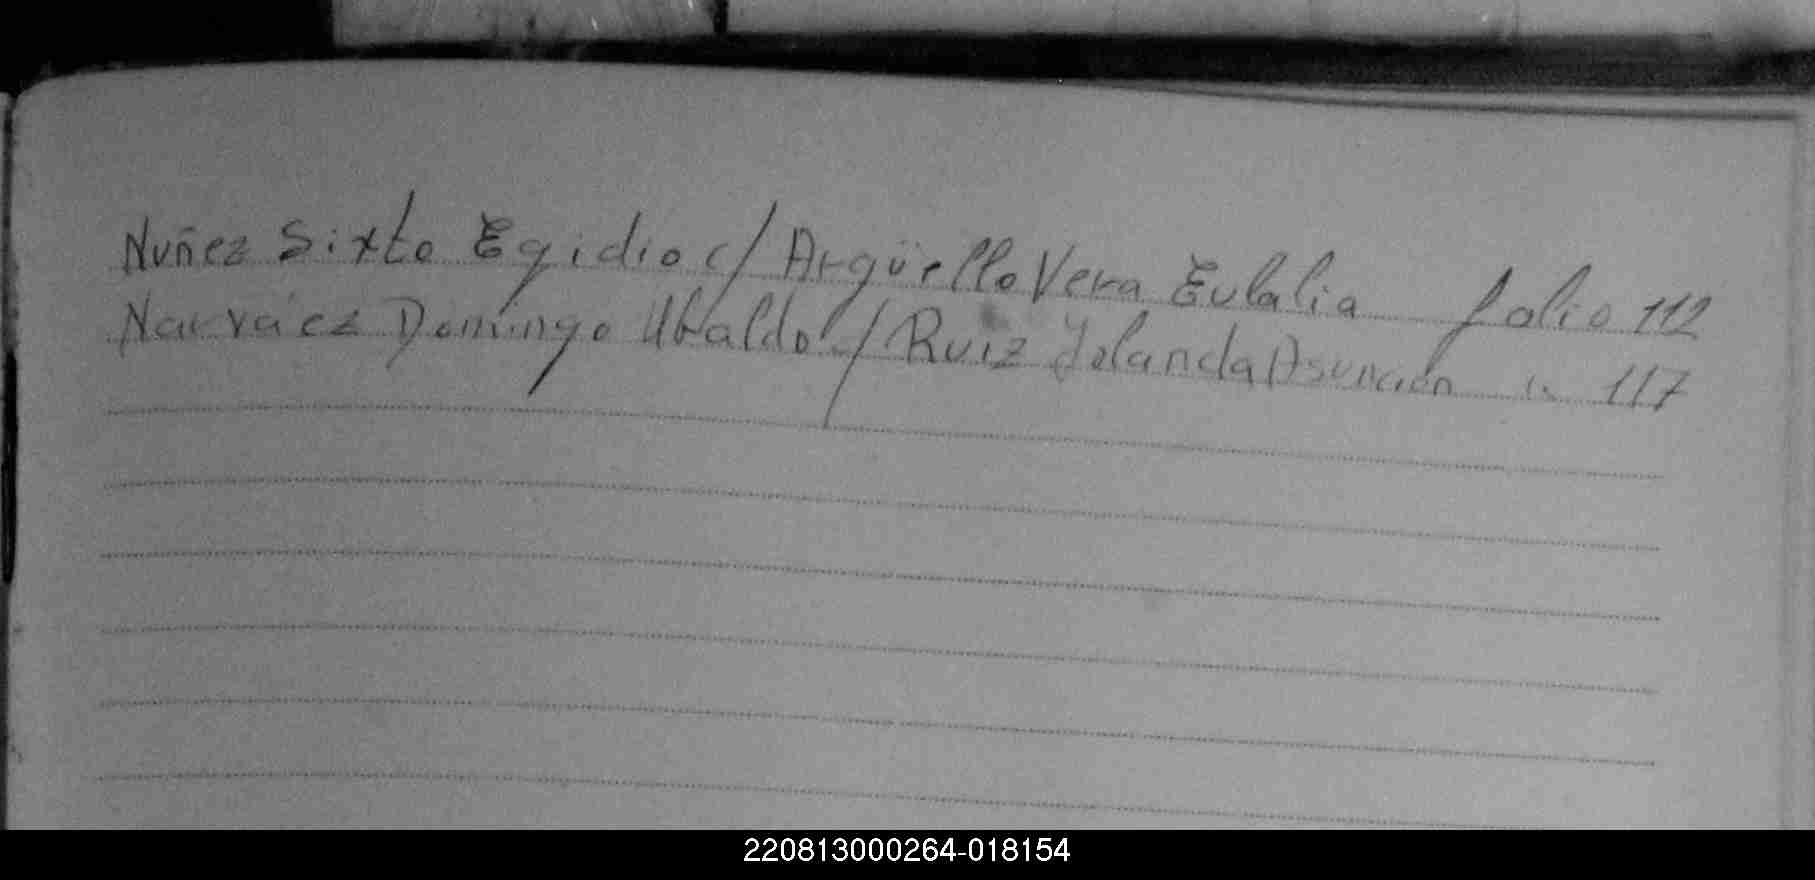 Nuñez Sixto Egidio c/ Argüello Vera Eulalia folio 112
Narváez Domingo Ubaldo c/ Ruiz Yolanda Asunción " 117
220813000264-018154